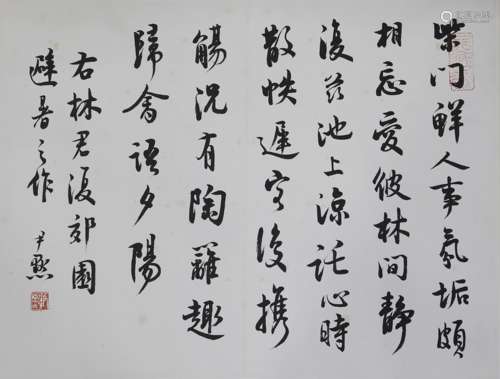 柴门鲜人事氛垢頗
相忘愛彼林间静
復茲池上涼託心時
散帙遲客復携
觴況有陶籬趣
歸禽語夕陽
右林君復郊園
避暑之作
尹默